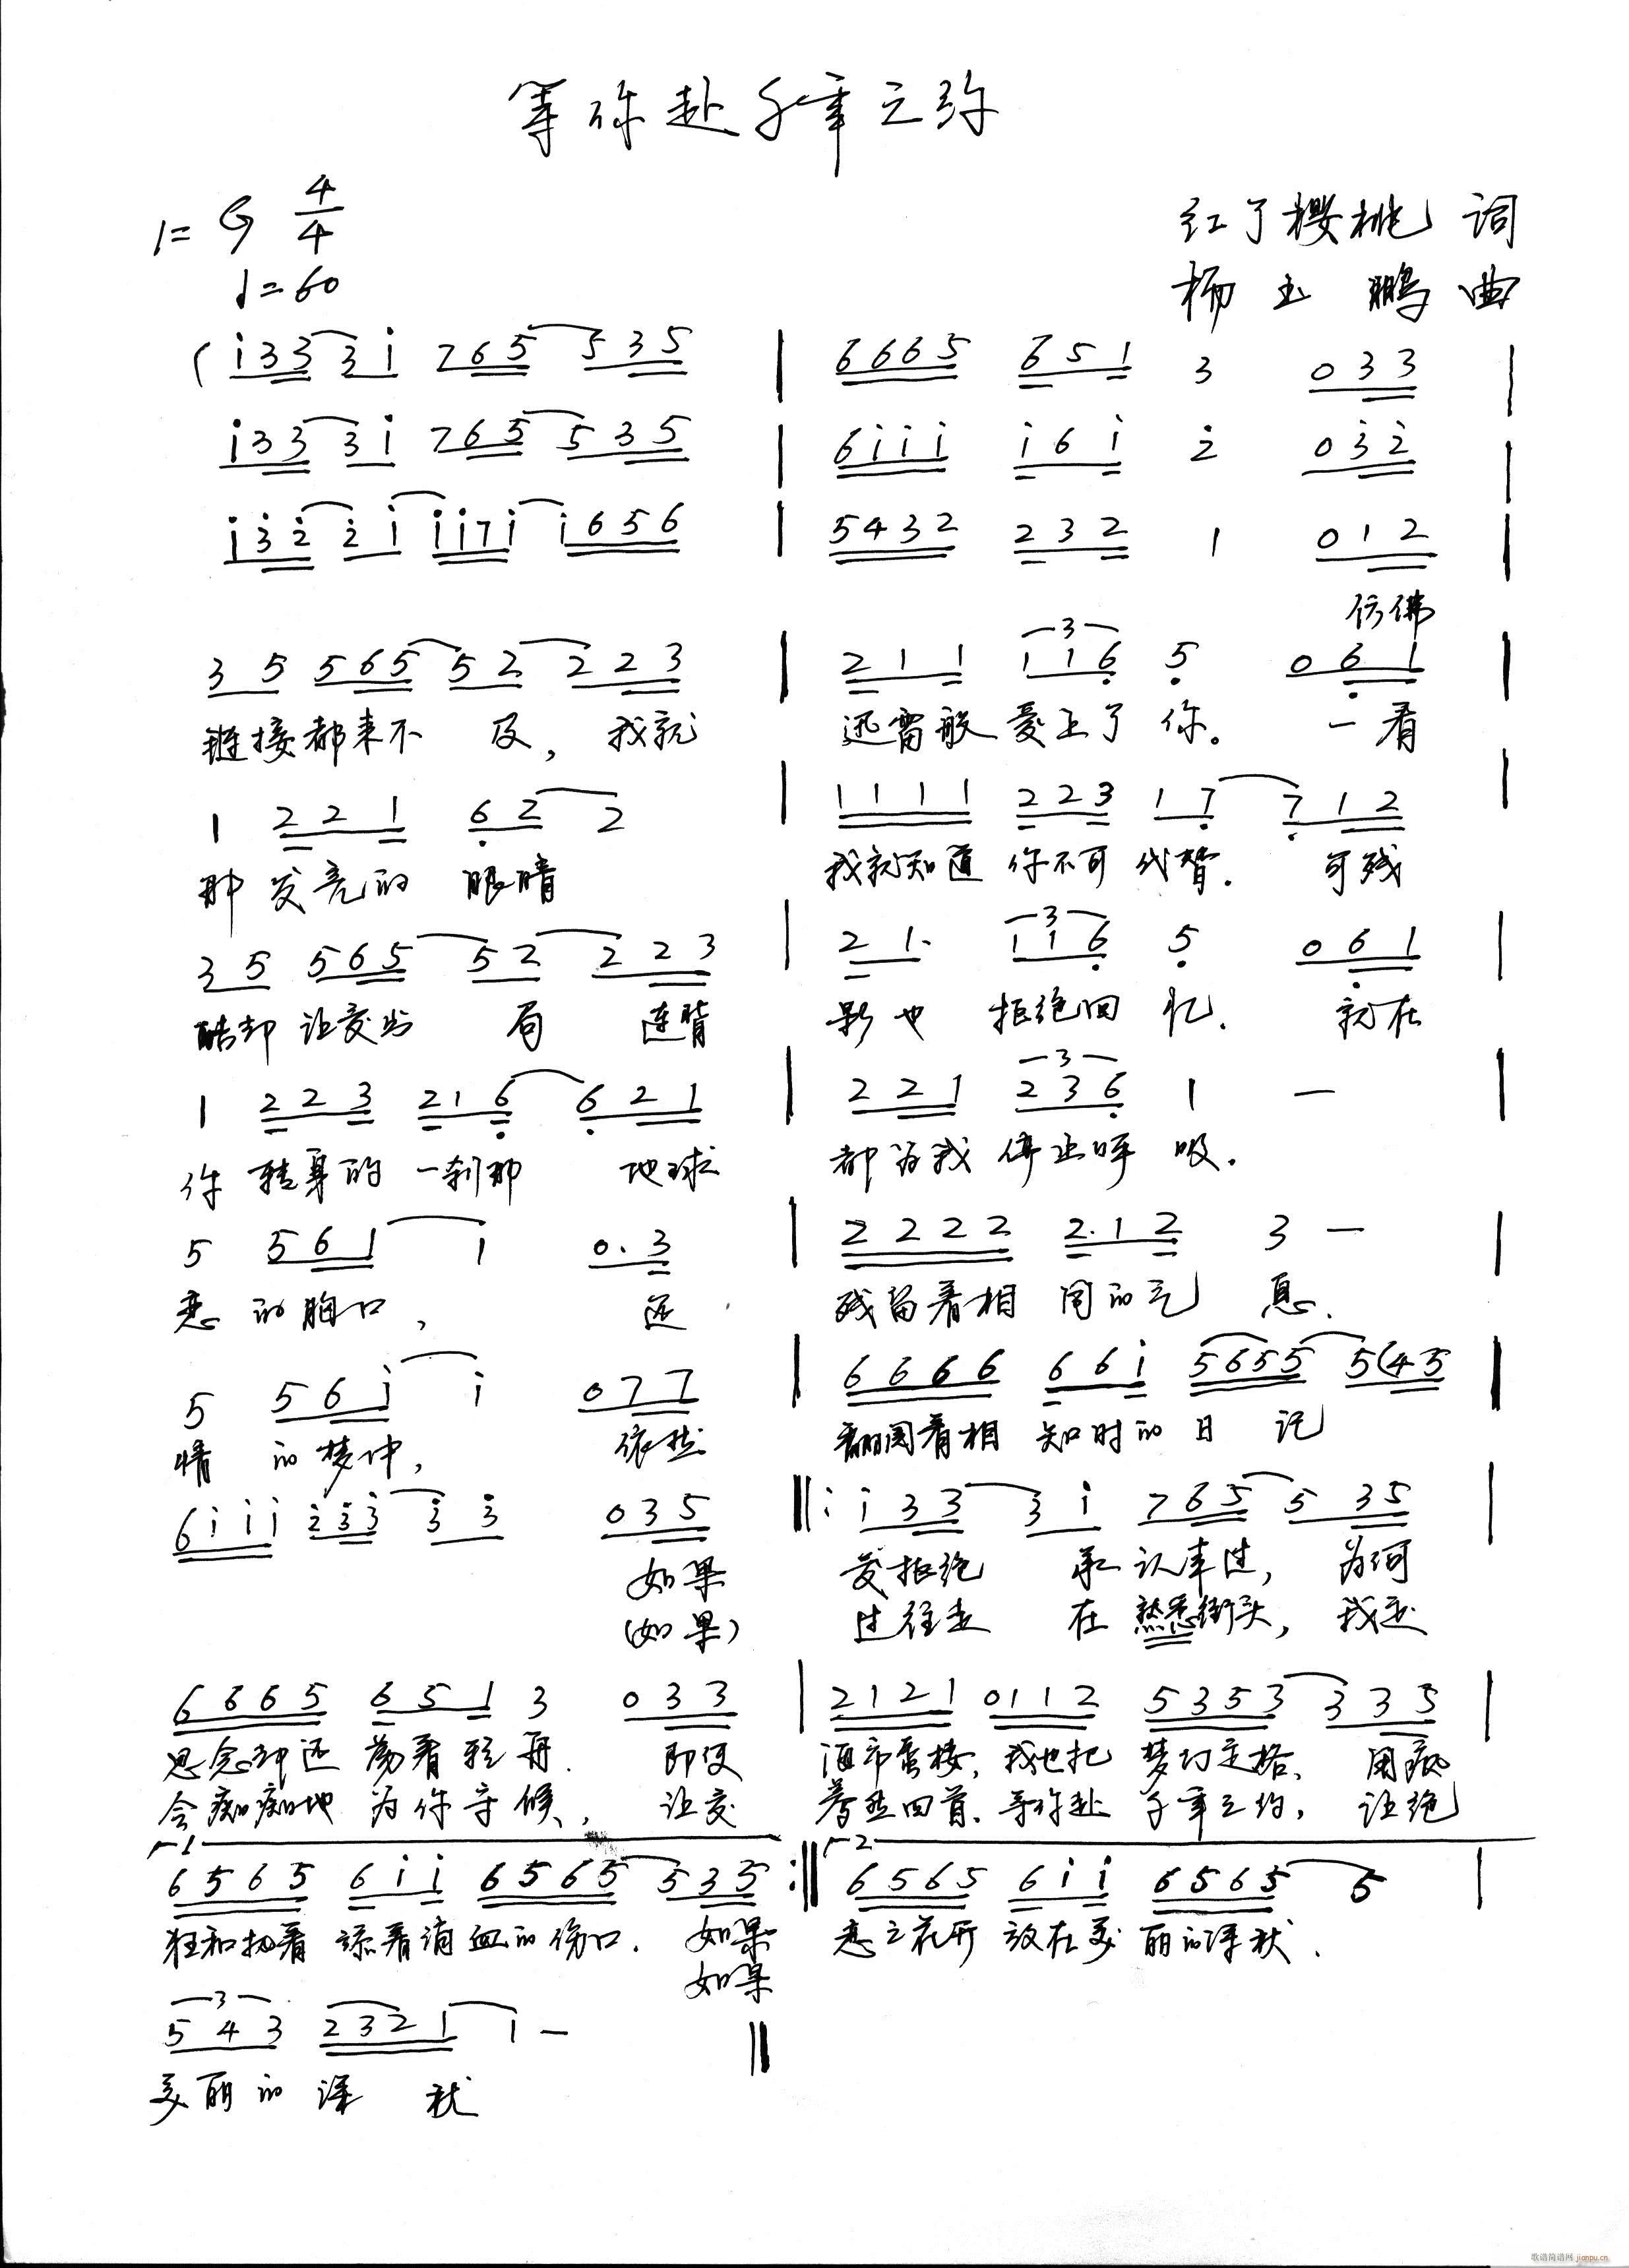 等你赴千年之约
1=G 4/4
♩=60
红了樱桃 词
杨玉鹏 曲
( i 3 3 3 i 7 6 5 5 3 5 | 6 6 6 5 6 5 1 3 0 3 3 |
i 3 3 3 i 7 6 5 5 3 5 | 6 i i i i 6 i 2 0 3 2 |
i 3 2 2 i i i 7 i i 6 5 6 | 5 4 3 2 2 3 2 1 0 1 2 |
仿佛
3 5 5 6 5 5 2 2 2 3 | 2 1 1 1 1 6 5 0 6 1 |
链接都来不 及, 我就 迅雷般 爱上了 你。 一看
1 2 2 1 6 2 2 | 1 1 1 1 2 2 3 1 7 7 1 2
那 发亮的 眼睛 我就知道 你不可 代替. 可残
3 5 5 6 5 5 2 2 2 3 | 2 1. 1 1 6 5 0 6 1 |
酷却 让交出 局 连背 影也 拒绝回 忆. 就在
1 2 2 3 2 1 6 6 2 1 | 2 2 1 2 3 6 1 — |
你 转身的 一刹那 地球 都为我 停止呼 吸.
5 5 6 1 1 0. 3 | 2 2 2 2 2. 1 2 3 — |
恋 的胸口, 还 残留着相 同的气 息.
5 5 6 i i 0 7 7 | 6 6 6 6 6 6 i 5 6 5 5 5 (4 5 |
情 的梦中, 依然 翻阅着相 知时的 日 记
6 i i i 2 3 3 3 3 0 3 5 ‖: i 3 3 3 i 7 6 5 5 3 5 |
如果 爱拒绝 承 认来过, 为何
(如果) 过往走 在 熟悉街头, 我还
6 6 6 5 6 5 1 3 0 3 3 | 2 1 2 1 0 1 1 2 5 3 5 3 3 3 5 |
思念却还 荡着轻舟. 即使 海市蜃楼, 我也把 梦幻定格, 用痴
会痴痴地 为你守候, 让爱 蓦然回首. 等你赴 千年之约, 让绝
1 2
6 5 6 5 6 i i 6 5 6 5 5 3 5 :‖ 6 5 6 5 6 i i 6 5 6 5 5 |
狂和执着 舔着滴 血的伤口. 如果 恋之花开 放在美 丽的深秋.
如果
5 4 3 2 3 2 1 1 — ‖
美丽的 深 秋
歌谱简谱网 jianpu.cn